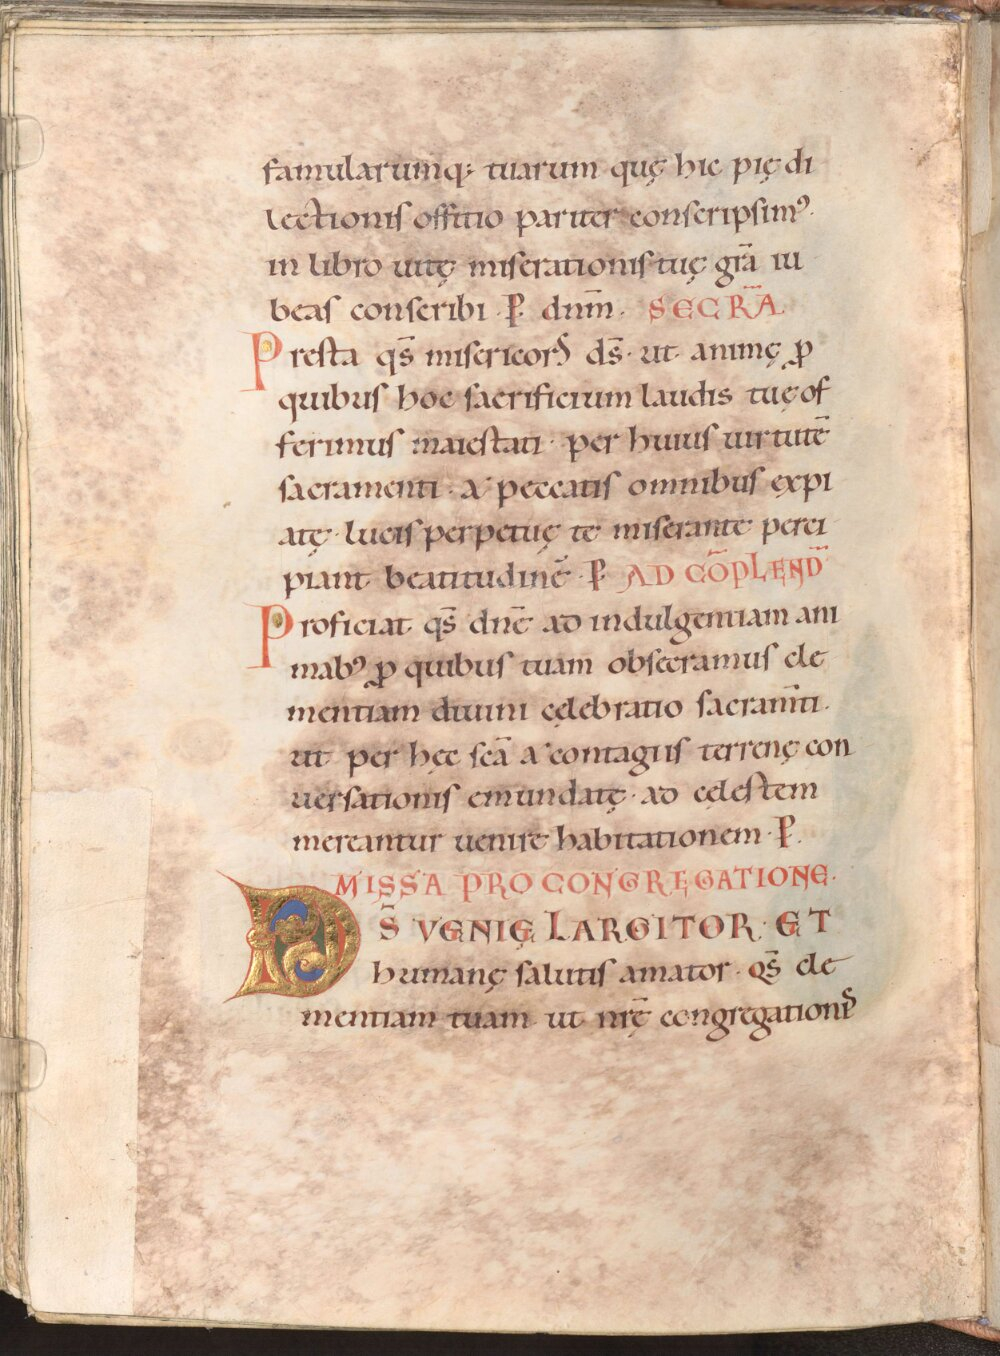 famularumq; tuarum quę hic pię di
lectionis offitio pariter conscripsim᾽.
in libro uitę miserationis tuę gr̄a iu
beas conscribi. P. dn̄m. SECR̄A
Presta qs̄ misericors ds̄. ut animę ꝓ
quibus hoc sacrificium laudis tuę of
ferimus maiestati. per huius uirtutē
sacramenti. a peccatis omnibus expi
atę. lucis perpetuę te miserante perci
piant beatitudinē. P. AD CŌPLEND̄
Proficiat qs̄ dn̄e ad indulgentiam ani
mab᾽ ꝓ quibus tuam obsecramus cle
mentiam diuini cęlebratio sacram̄ti.
ut per hęc sc̄a a contagiis terrenę con
uersationis emundatę. ad cęlestem
mereantur uenire habitationem. P.
MISSA PRO CONGREGATIONE.
DS̄ VENIĘ LARGITOR. ET
humanę salutis amator. qs̄ cle
mentiam tuam. ut nr̄ę congregationis